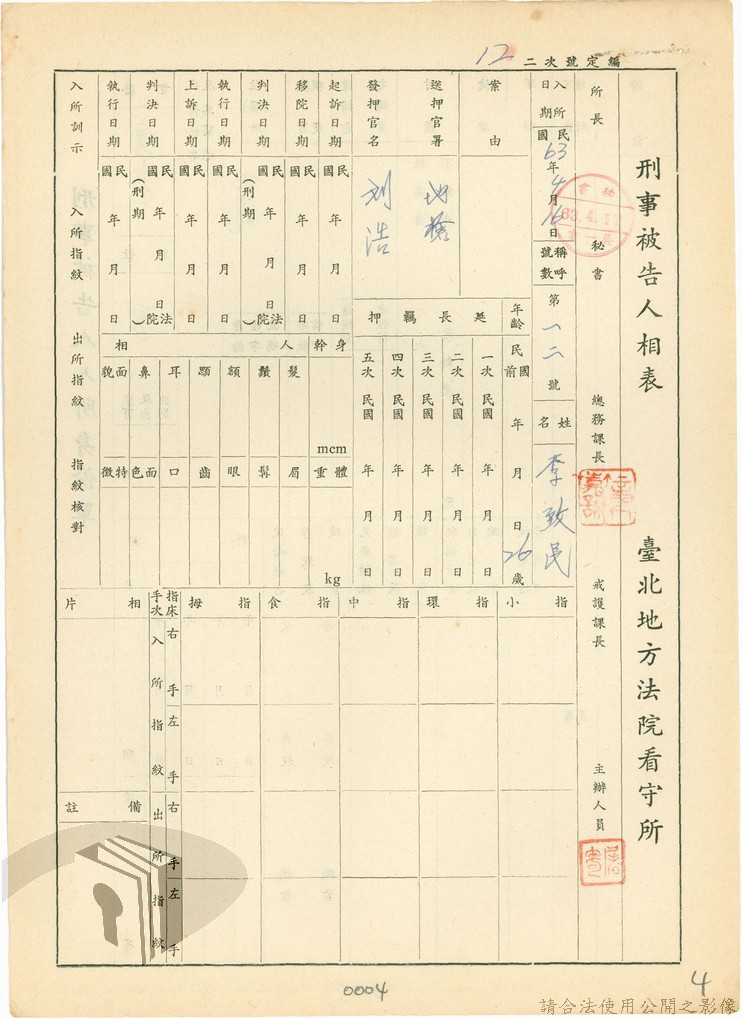 編定號次二 12
刑事被告人相表
臺北地方法院看守所
所長
秘書
總務課長
戒護課長
主辦人員
入所日期
民國63年4月16日
稱呼號數
第一二號
姓名
李致民
年齡
民國前 年 月 日 26歲
案由
送押官署
地檢
發押官名
刘浩
延長羈押
一次 民國 年 月 日
二次 民國 年 月 日
三次 民國 年 月 日
四次 民國 年 月 日
五次 民國 年 月 日
起訴日期 民國 年 月 日
移院日期 民國 年 月 日
判決日期 民國 年 月 日 法院 (刑期 )
執行日期 民國 年 月 日
上訴日期 民國 年 月 日
判決日期 民國 年 月 日 法院 (刑期 )
執行日期 民國 年 月 日
身幹 mcm
體重 kg
人相
髮 鬚 額 顋 耳 鼻 面貌
眉 髯 眼 齒 口 面色 特徵
入所訓示
入所指紋
出所指紋
指紋核對
小指
環指
中指
食指
拇指
指床
手次
右手
左手
右手
左手
入所指紋
出所指紋
相片
備註
0004
4
請合法使用公開之影像